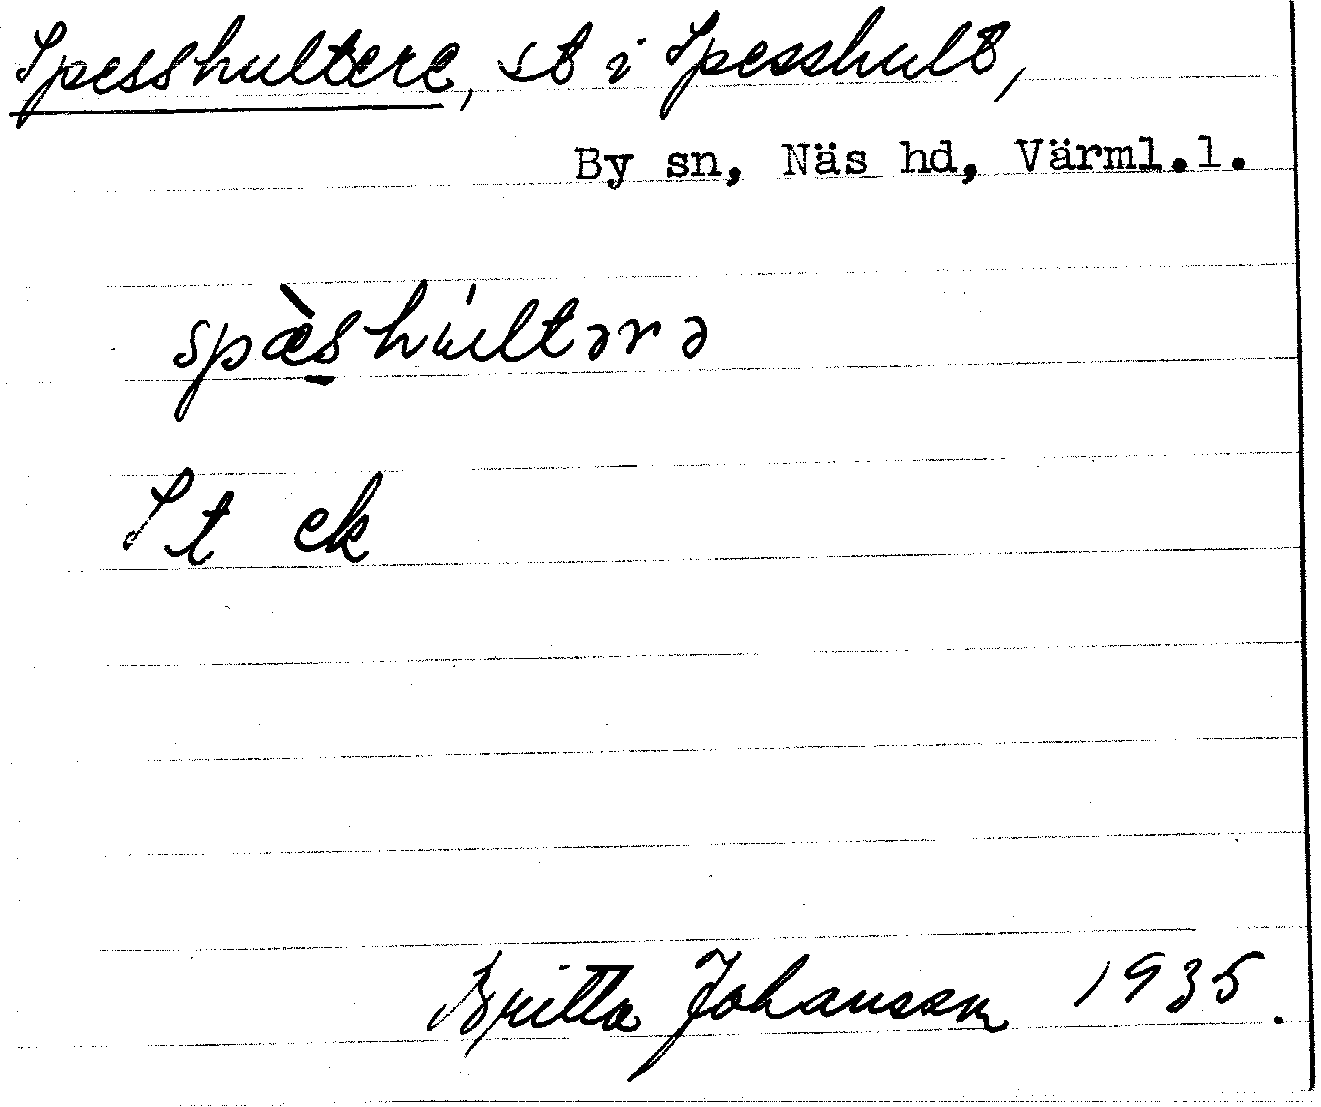 Spesshultere, st i Spesshult,
By sn, Näs hd, Värml.l.
spæ̀s̲hu̍ltərə
St ek
Britta Johansson 1935.